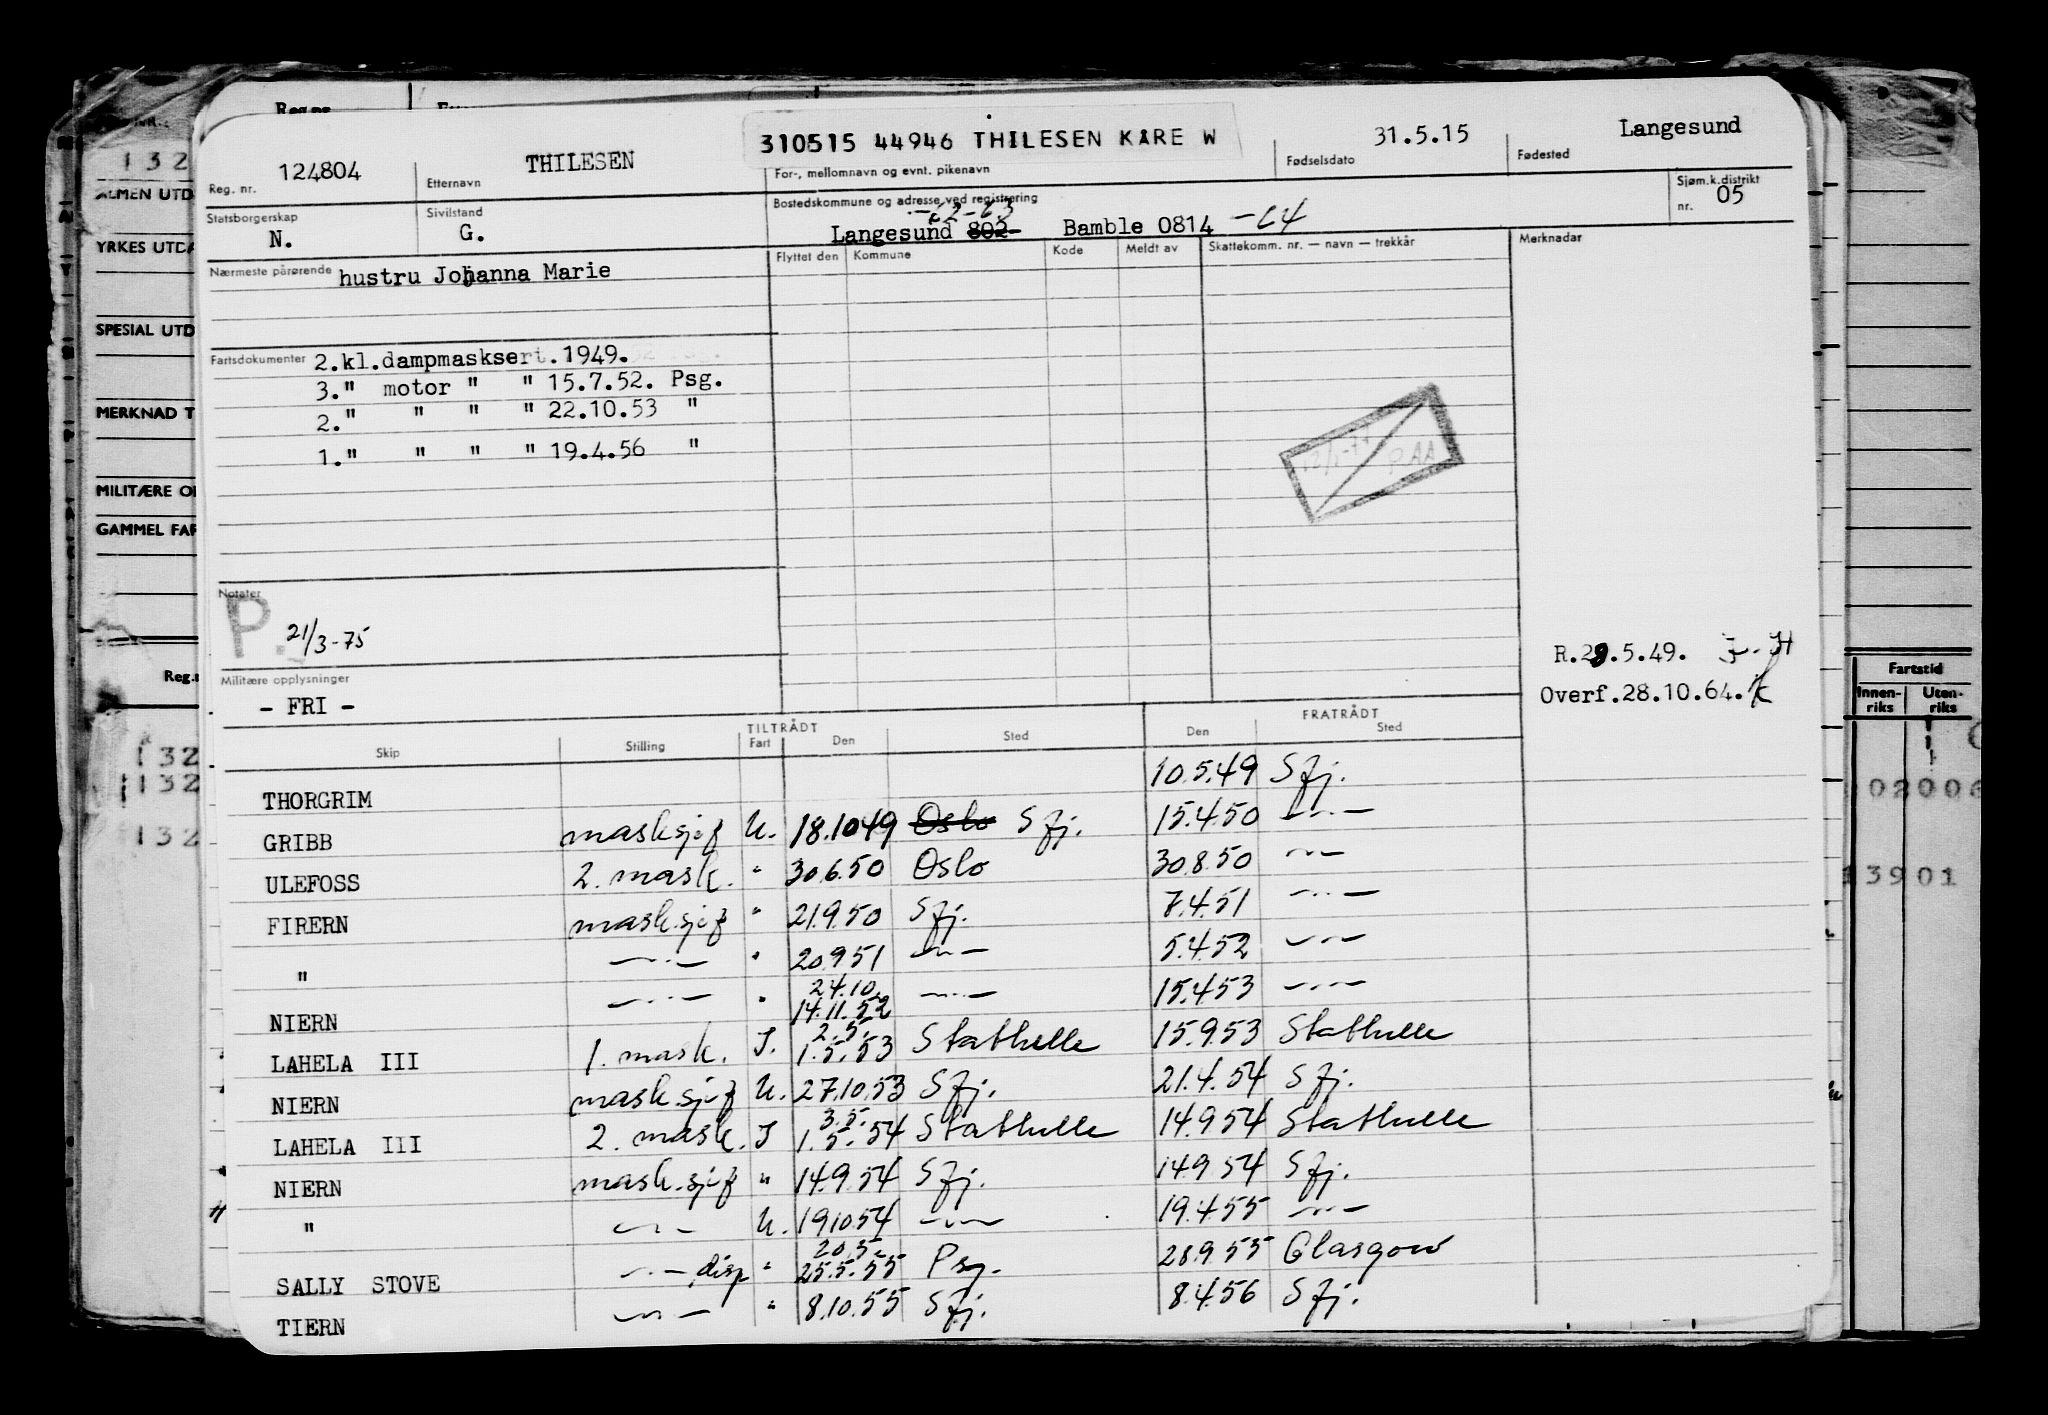 Reg. nr. 124804
Etternavn THILESEN
310515 44946 THILESEN KARE W
For-, mellomnavn og evnt. pikenavn
Fødselsdato 31.5.15
Fødested Langesund
Statsborgerskap N.
Sivilstand G.
Bostedskommune og adresse ved registrering
-62-63
Langesund 802 Bamble 0814 -64
Sjøm.k.distrikt nr. 05
Nærmeste pårørende hustru Johanna Marie
Flyttet den Kommune Kode Meldt av Skattekomm. nr. — navn — trekkår Merknadar
Fartsdokumenter 2.kl.dampmasksert.1949.
3." motor " " 15.7.52. Psg.
2." " " " 22.10.53 "
1." " " " 19.4.56 "
Notater
P. 21/3-75
Militære opplysninger
- FRI -
R.28.5.49.
Overf.28.10.64.
TILTRÅDT FRATRÅDT
Skip Stilling Fart Den Sted Den Sted
THORGRIM 10.5.49 Sfj.
GRIBB masksjef U. 18.10 49 Oslo Sfj. 15.4.50 —"—
ULEFOSS 2. mask. " 30.6.50 Oslo 30.8.50 —"—
FIRERN mask.sjef " 21.9.50 Sfj. 7.4.51 —"—
" —"— " 20.9 51 —"— 5.4.52 —"—
24.10
NIERN —"— " 14.11.52 —"— 15.4 53 —"—
2.5.
LAHELA III 1. mask. I. 1.5.53 Stathelle 15.9.53 Stathelle
NIERN mask.sjef U. 27.10.53 Sfj. 21.4.54 Sfj.
3.5.
LAHELA III 2. mask. I 1.5.54 Stathelle 14.9.54 Stathelle
NIERN mask.sjef " 14.9.54 Sfj. 14.9 54 Sfj.
" —"— U. 19.10.54 —"— 19.4.55 —"—
20.5.
SALLY STOVE —"— disp " 25.5.55 Psg. 28.9.55 Glasgow
TIERN —"— " 8.10.55 Sfj. 8.4.56 Sfj.
Reg.nr.
132
YRKES UTDA
SPESIAL UTD
MERKNAD T
MILITÆRE O
GAMMEL FAR
132
132
132
Fartstid
Innen-riks Uten-riks
02006
13901